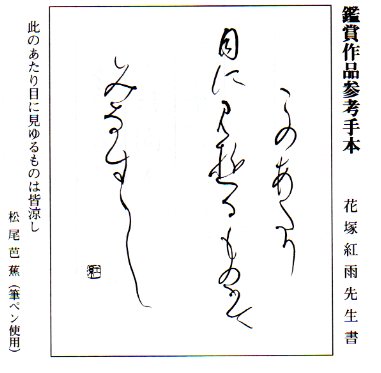 鑑賞作品参考手本　花塚紅雨先生書
このあたり
目に見ゆるものは
みなすゝし
此のあたり目に見ゆるものは皆涼し
松尾芭蕉(筆ペン使用)